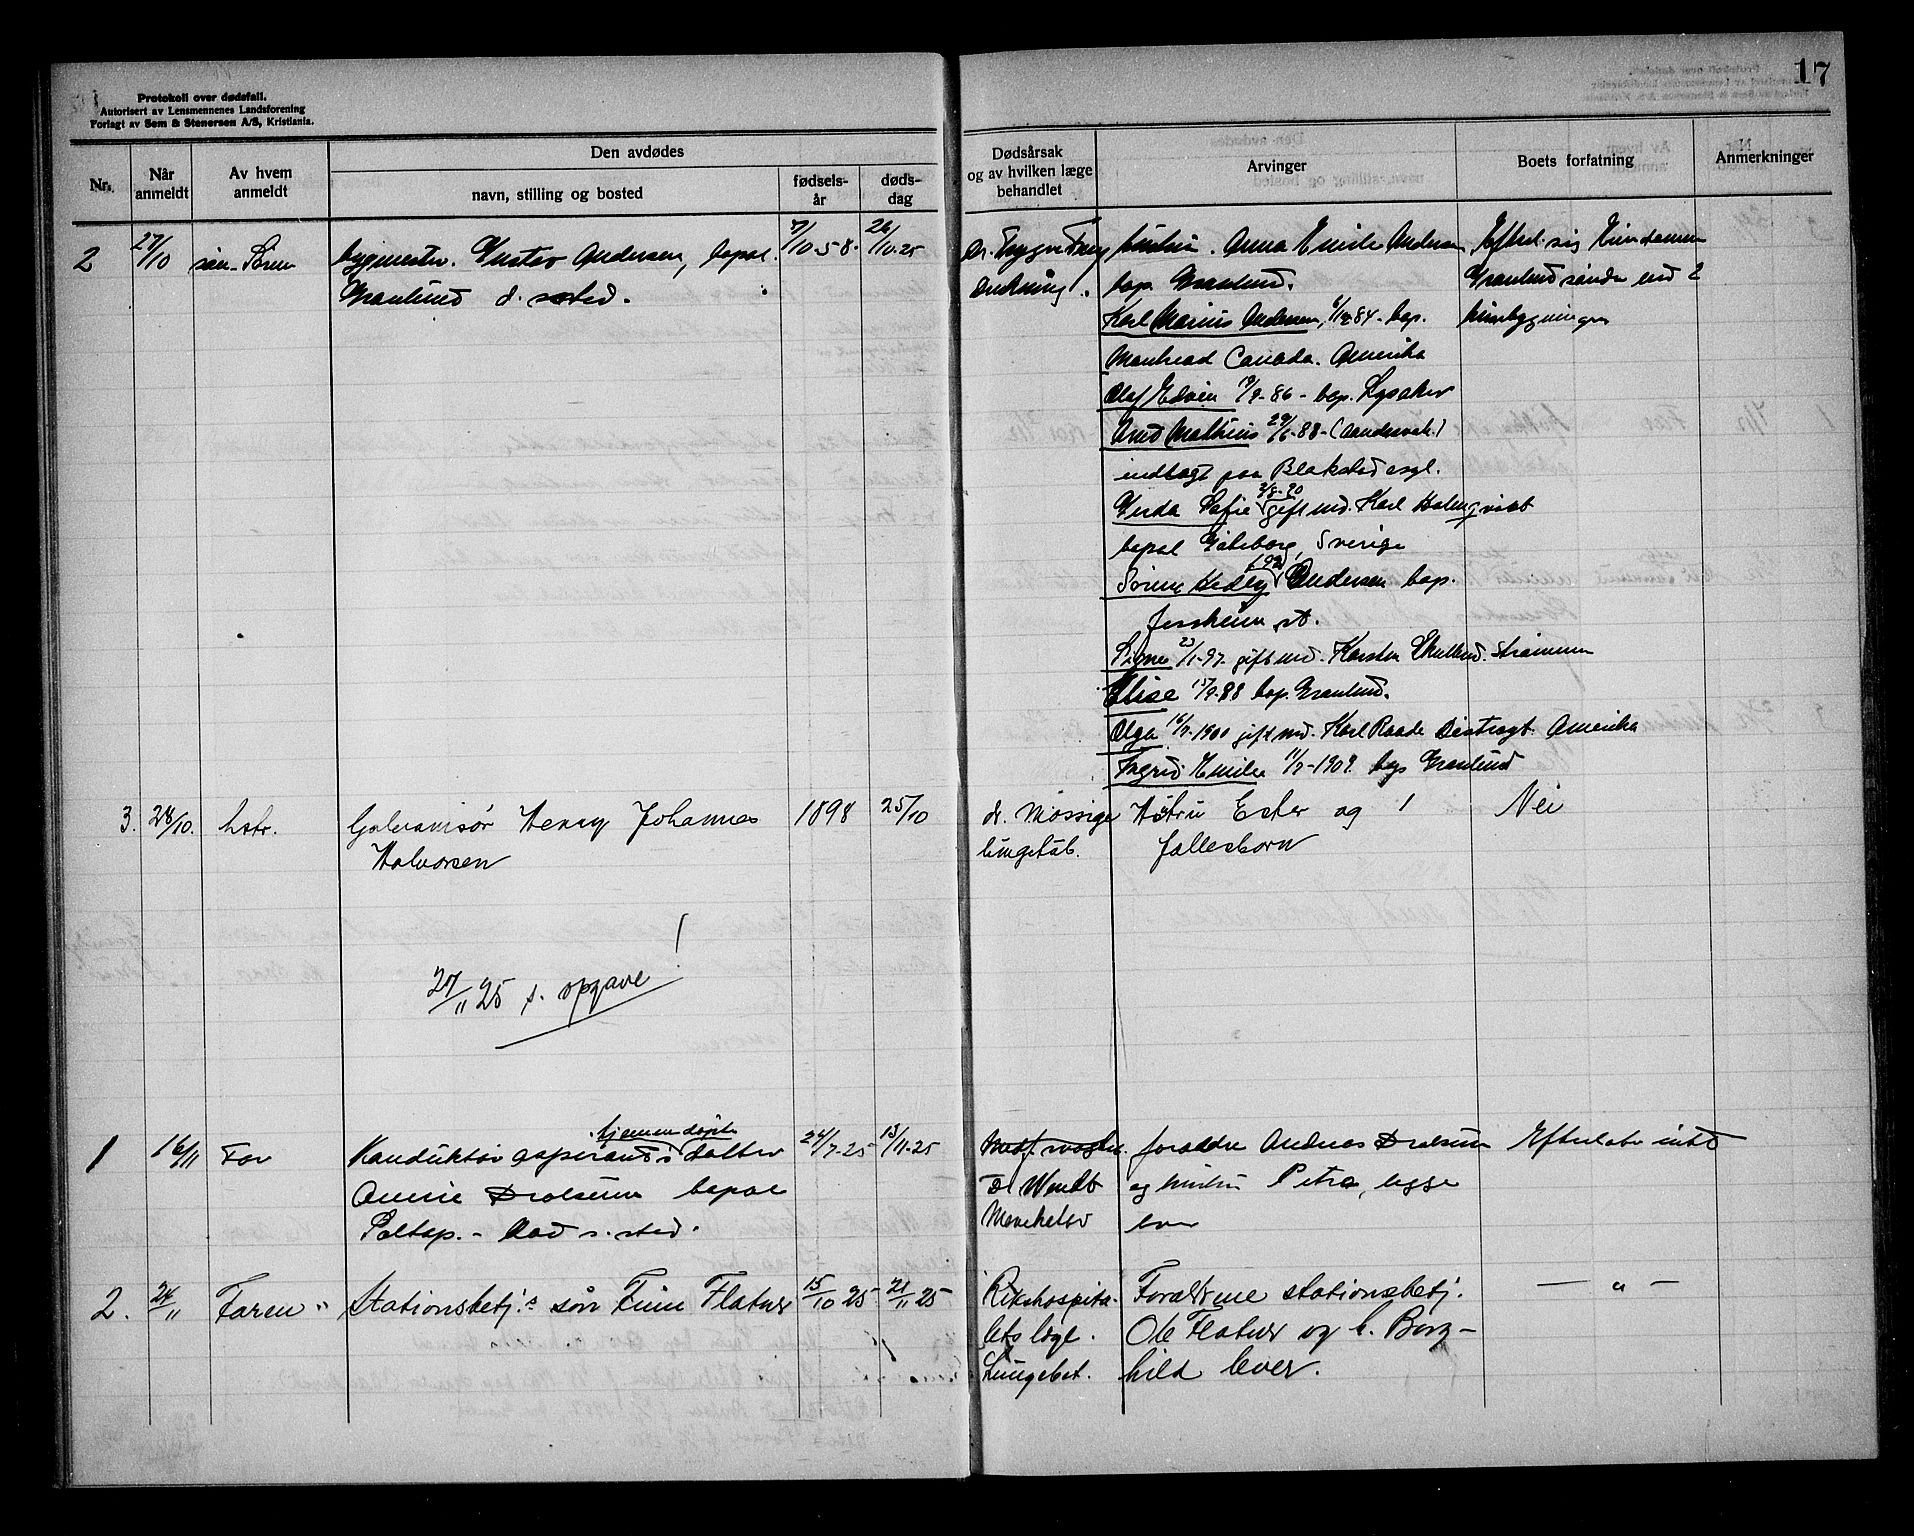 Protokoll over dødsfall.
Autorisert av Lensmennenes Landsforening
Forlagt av Sem & Stenersen A/S, Kristiania.
17
Nr.
Når anmeldt
Av hvem anmeldt
Den avdødes
navn, stilling og bosted
fødsels-år
døds-dag
Dødsårsak og av hvilken læge behandlet
Arvinger
Boets forfatning
Anmerkninger
2 27/10 søn Sören
bygmester Gustav Andersen, bopæl
Granlund d. sted.
7/10-58. 26/10-25
Dr. Trygve
hustru. Anna Emilie Andersen
bop. Granlund.
Karl Marius Andersen, 84. bop.
Canada. Amerika
Olaf Edvin 19/9-86 - bop. Lysaker
Arnt Mathius 29/6-88 -
indlagt paa Blakstad asyl.
Gerda Sofie 2/8-90 gift med. Karl Holmqvist
bopæl Göteborg, Sverige
Andersen bop.
Jessheim st.
Signe 23/1-97. gift med. Karsten Strømmen
Elise 15/9-88 bop. Granlund.
Olga 16/7-1900 gift med. Karl Raade Amerika
Ingrid Emilie 11/9-1909. bop Granlund
Efterl. sig Eiendommen
Granlund søndre med 2
husbygninger
3. 28/10. hstr.
Galvanisør Henry Johannes
Halvorsen
1898 25/10
dr. Mossige
lungetub.
Hustru Ester og 1
fællesbarn
Nei
27/11 25 s. opgave!
1 16/11 Far
hjemmedøpte
Konduktøraspirants datter
bopæl
s. sted.
24/7-25 13/11-25
Dr Wendt
forældre Andreas
og hustru Petra, begge
Efterlater intet
2. 24/11 Faren
Stationsbetj.s søn Finn Flatner
15/10 25 21/11 25
Rikshospita-
lets læge.
Lungebet.
Forældrene stationsbetj.
Ole Flatner og h. Borg-
hild lever.
— „ —